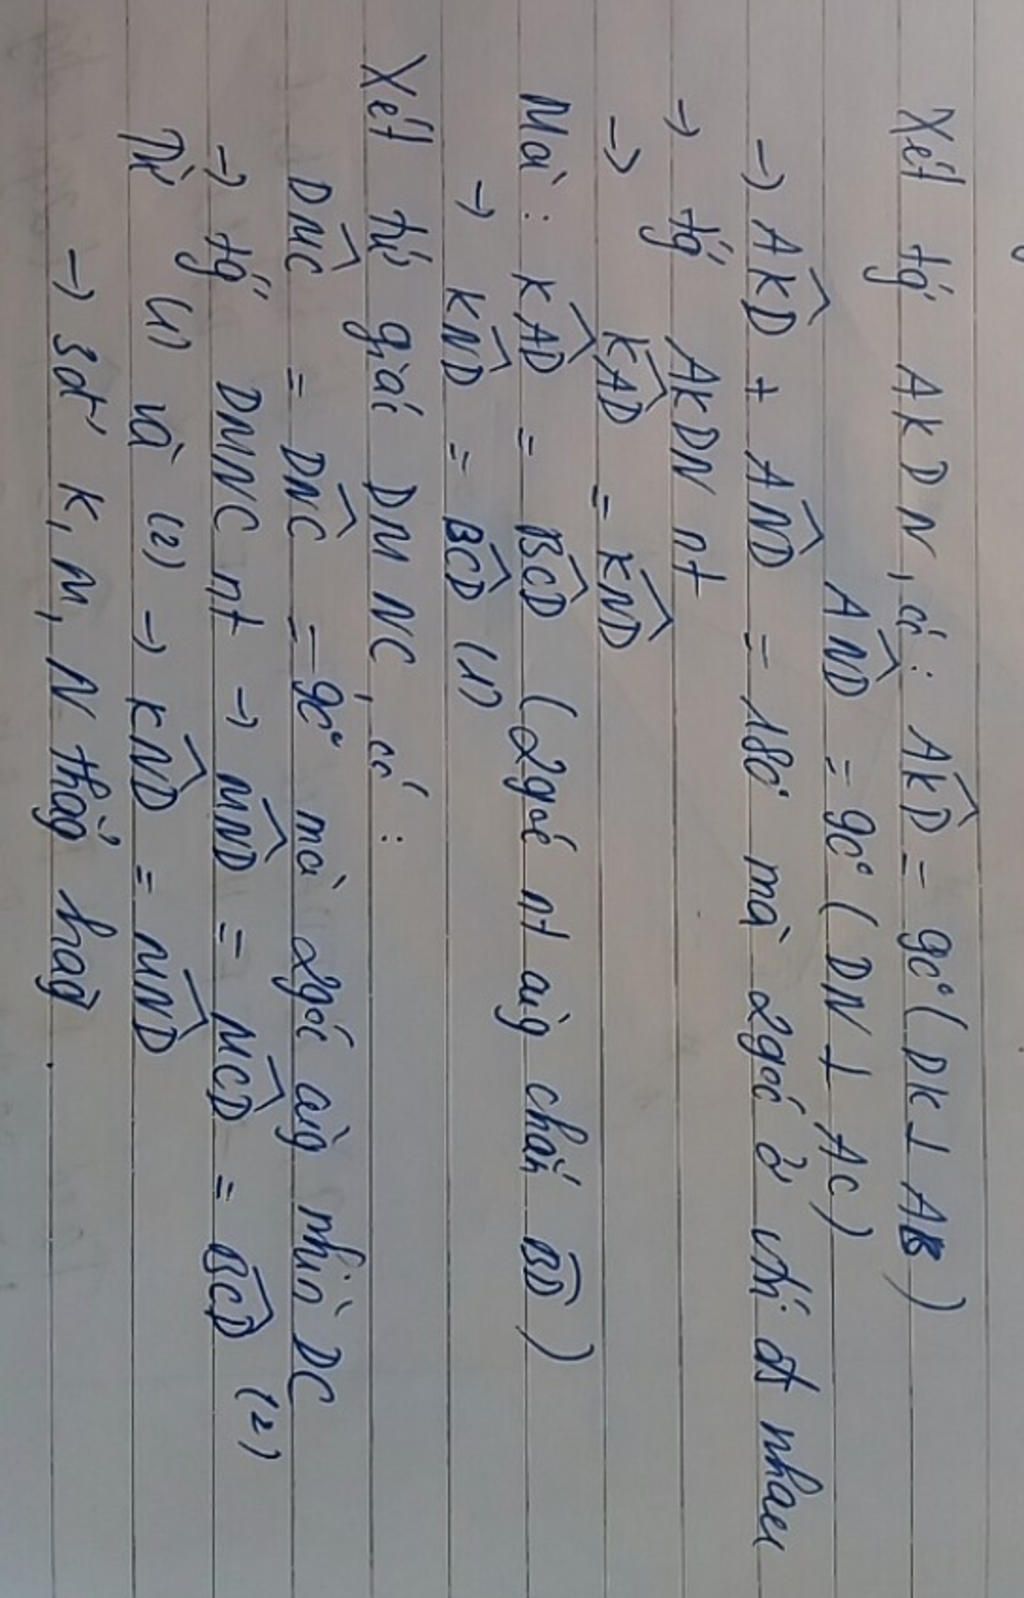 Xét tg' AKDN, có: \widehat{AKD} = 90° (DK ⊥ AB)
\widehat{AND} = 90° (DN ⊥ AC)
→ \widehat{AKD} + \widehat{AND} = 180° mà 2góc ở vtrí đ² nhau
→ tg' AKDN nt
→ \widehat{KAD} = \widehat{KND}
Mà: \widehat{KAD} = \widehat{BCD} (2góc nt cùg chắn \widehat{BD})
→ \widehat{KND} = \widehat{BCD} (1)
Xét tứ giác DMNC, có:
\widehat{DMC} = \widehat{DNC} = 90° mà 2góc cùg nhìn DC
→ tg' DMNC nt → \widehat{MND} = \widehat{MCD} = \widehat{BCD} (2)
Từ (1) và (2) → \widehat{KND} = \widehat{MND}
→ 3đ' K, M, N thẳg hàg.